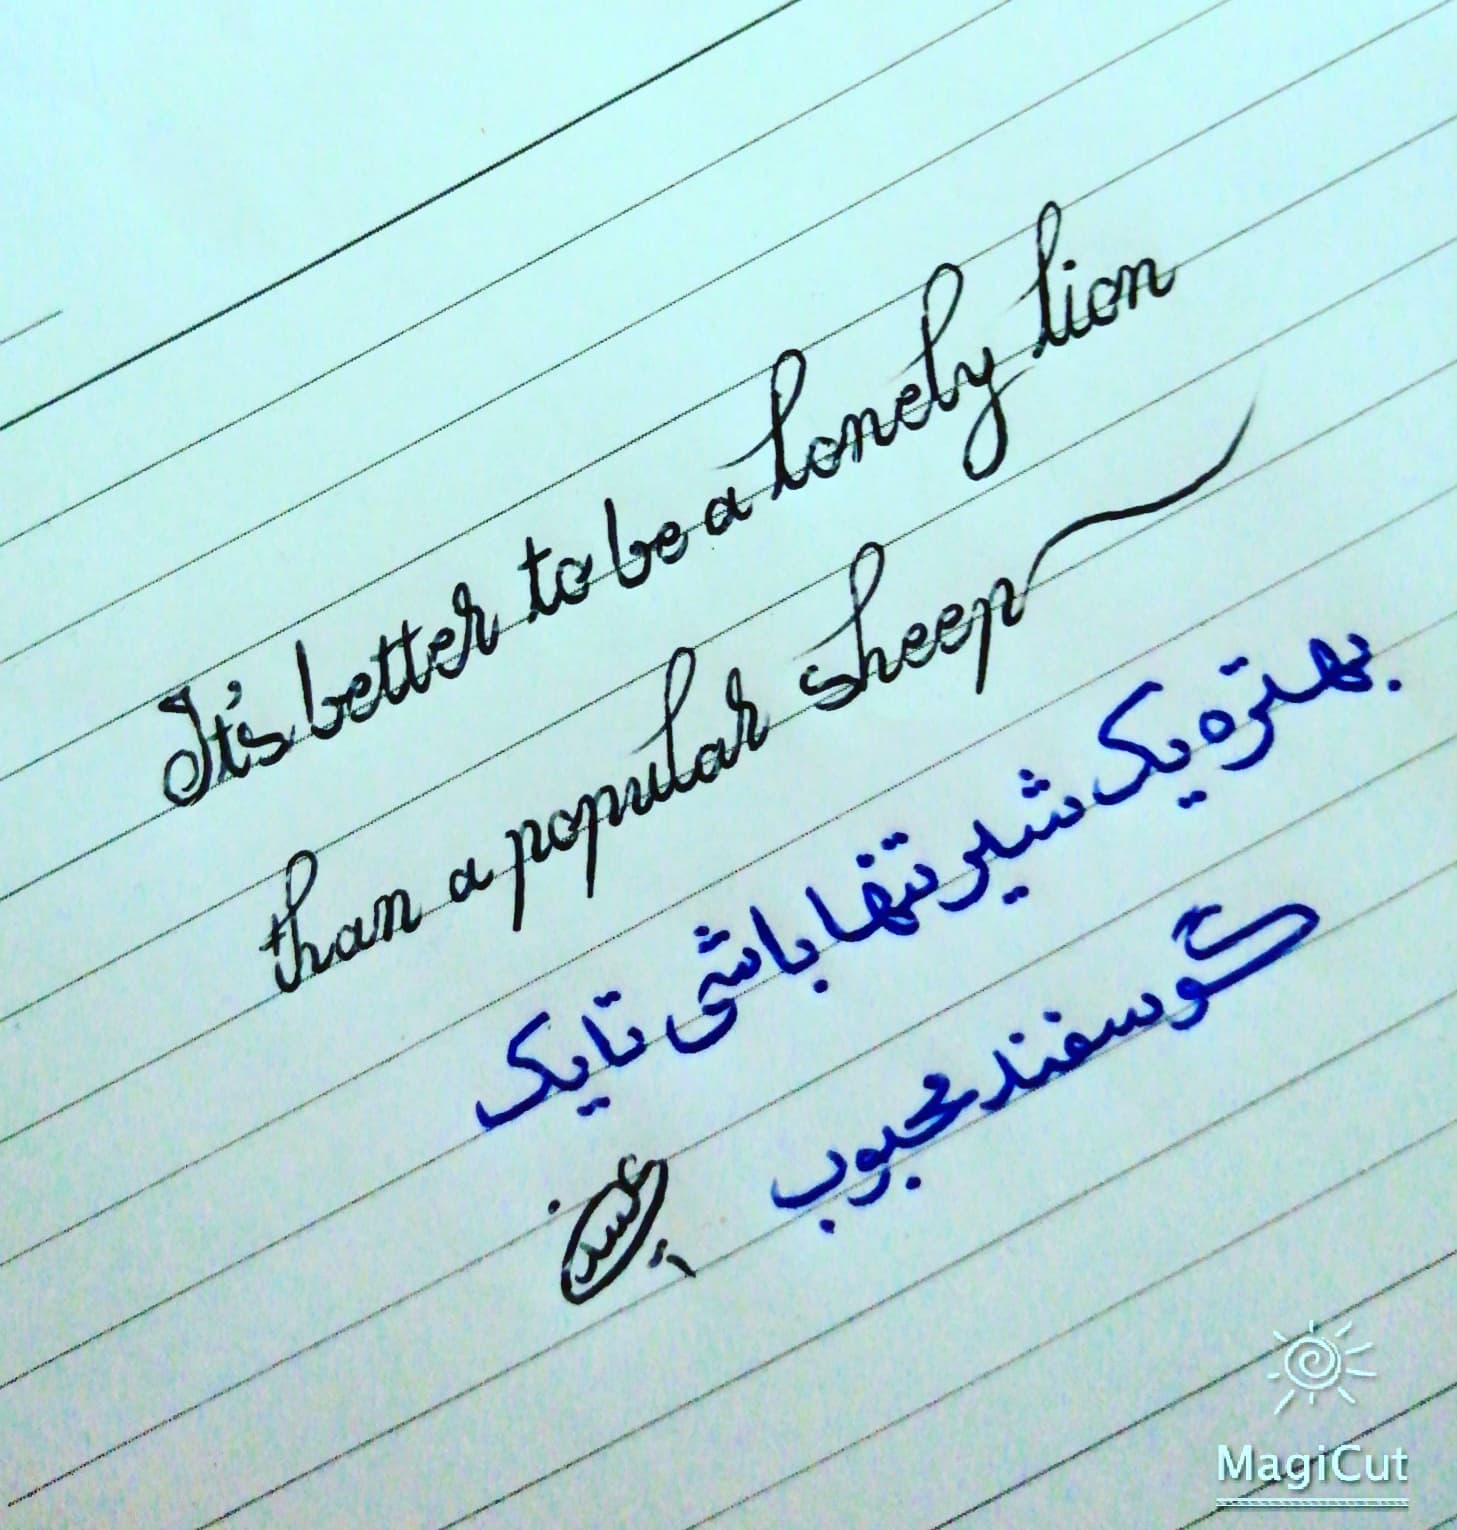 It's better to be a lonely lion
than a popular sheep
بهتره یک شیر تنها باشی تا یک
گوسفند محبوب
MagiCut